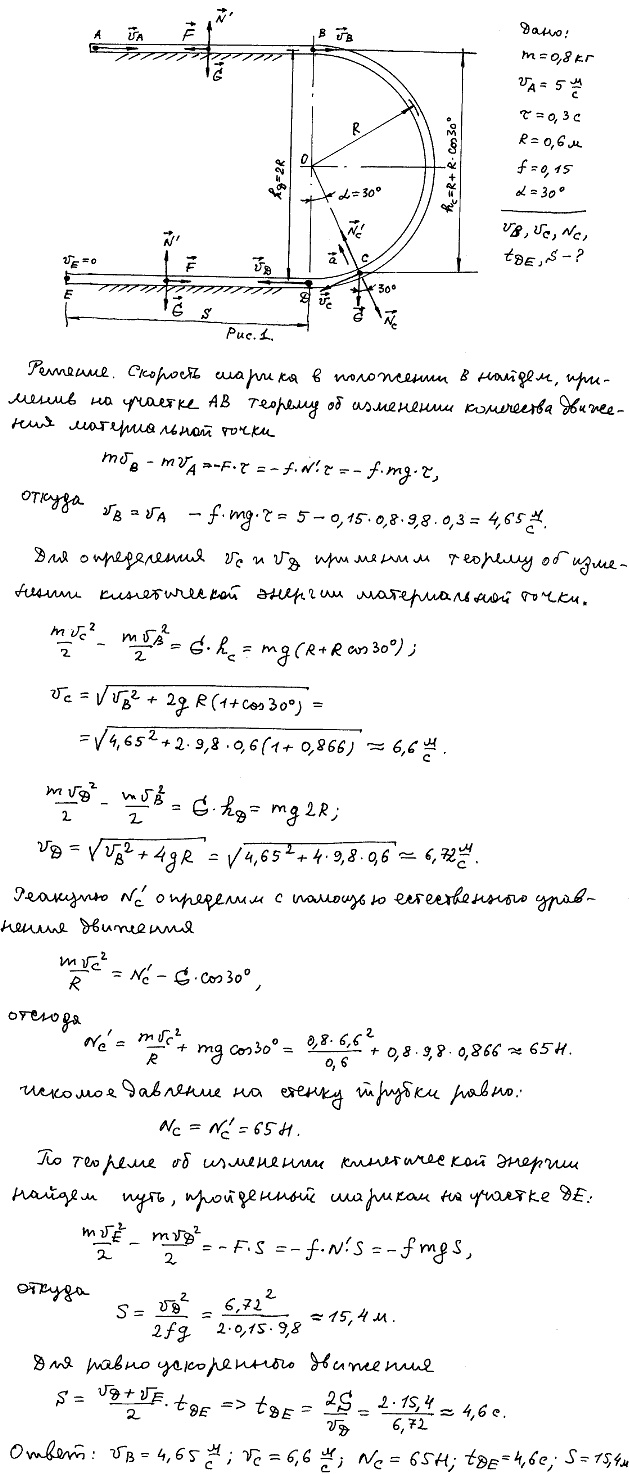 A
v⃗A
F⃗
N⃗'
G⃗
B
v⃗B
R
O
hD=2R
α=30°
hC=R+R·cos30°
N⃗C'
a⃗
C
v⃗C
G⃗
30°
N⃗C
vE=0
E
N⃗'
F⃗
G⃗
v⃗D
D
S
Рис.1.
Дано:
m=0,8 кг
vA=5 м/с
τ=0,3 с
R=0,6 м
f=0,15
α=30°
vB, vC, NC,
tDE, S – ?
Решение. Скорость шарика в положении B найдем, при-
менив на участке AB теорему об изменении количества движе-
ния материальной точки
mvB – mvA = –F·τ = –f·N'·τ = –f·mg·τ,
откуда vB = vA – f·mg·τ = 5 – 0,15·0,8·9,8·0,3 = 4,65 м/с.
Для определения vC и vD применим теорему об изме-
нении кинетической энергии материальной точки.
mvC²/2 – mvB²/2 = G·hC = mg(R+R cos30°);
vC = √(vB² + 2gR(1+cos30°)) =
= √(4,65² + 2·9,8·0,6(1+0,866)) ≈ 6,6 м/с.
mvD²/2 – mvB²/2 = G·hD = mg2R;
vD = √(vB² + 4gR) = √(4,65² + 4·9,8·0,6) ≈ 6,72 м/с.
Реакцию NC' определим с помощью естественного урав-
нения движения
mvC²/R = NC' – G·cos30°,
отсюда NC' = mvC²/R + mg cos30° = 0,8·6,6²/0,6 + 0,8·9,8·0,866 ≈ 65 Н.
искомое давление на стенку трубки равно:
NC = NC' = 65 Н.
По теореме об изменении кинетической энергии
найдем путь, пройденный шариком на участке DE:
mvE²/2 – mvD²/2 = –F·S = –f·N'·S = –fmgS,
откуда S = vD²/2fg = 6,72²/2·0,15·9,8 ≈ 15,4 м.
Для равноускоренного движения
S = (vD+vE)/2·tDE => tDE = 2S/vD = 2·15,4/6,72 ≈ 4,6 с.
Ответ: vB=4,65 м/с; vC=6,6 м/с; NC=65 Н; tDE=4,6 с; S=15,4 м